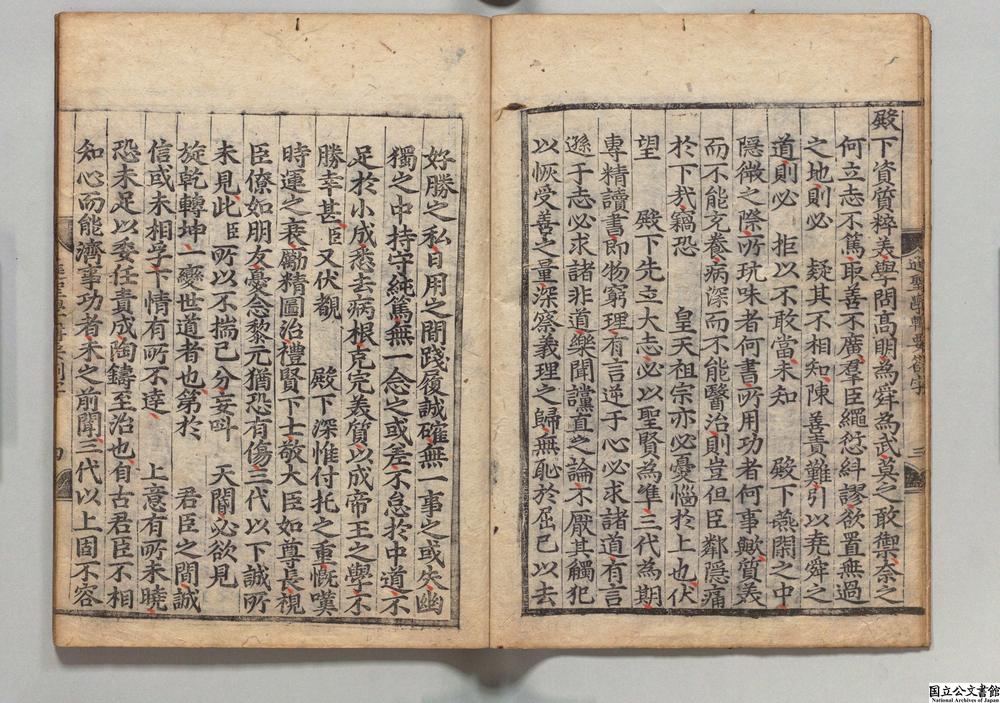 殿下資質粹美學問高明為舜為武莫之敢禦奈之
何立志不篤取善不廣群臣繩愆糾謬欲置無過
之地則必 疑其不相知陳善責難引以堯舜之
道則必 拒以不敢當未知 殿下燕閑之中
隱微之際所玩味者何書所用功者何事歟質美
而不能充養病深而不能醫治則豈但臣鄰隱痛
於下哉竊恐 皇天祖宗亦必憂惱於上也伏
望 殿下先立大志必以聖賢為準三代為期
專精讀書即物窮理有言逆于心必求諸道有言
遜于志必求諸非道樂聞讜直之論不厭其觸犯
以恢受善之量深察義理之歸無恥於屈己以去
進聖學輯要箚字 三
好勝之私日用之間踐履誠確無一事之或失幽
獨之中持守純篤無一念之或差不怠於中道不
足於小成悉去病根克完美質以成帝王之學不
勝幸甚臣又伏覩 殿下深惟付托之重慨嘆
時運之衰勵精圖治禮賢下士敬大臣如尊長視
臣僚如朋友憂念黎元猶恐有傷三代以下誠所
未見此臣所以不揣己分妄叫 天閽必欲見
旋乾轉坤一變世道者也第於 君臣之間誠
信或未相孚下情有所不達 上意有所未曉
恐未足以委任責成陶鑄至治也自古君臣不相
知心而能濟事功者未之前聞三代以上固不容
四
国立公文書館
National Archives of Japan